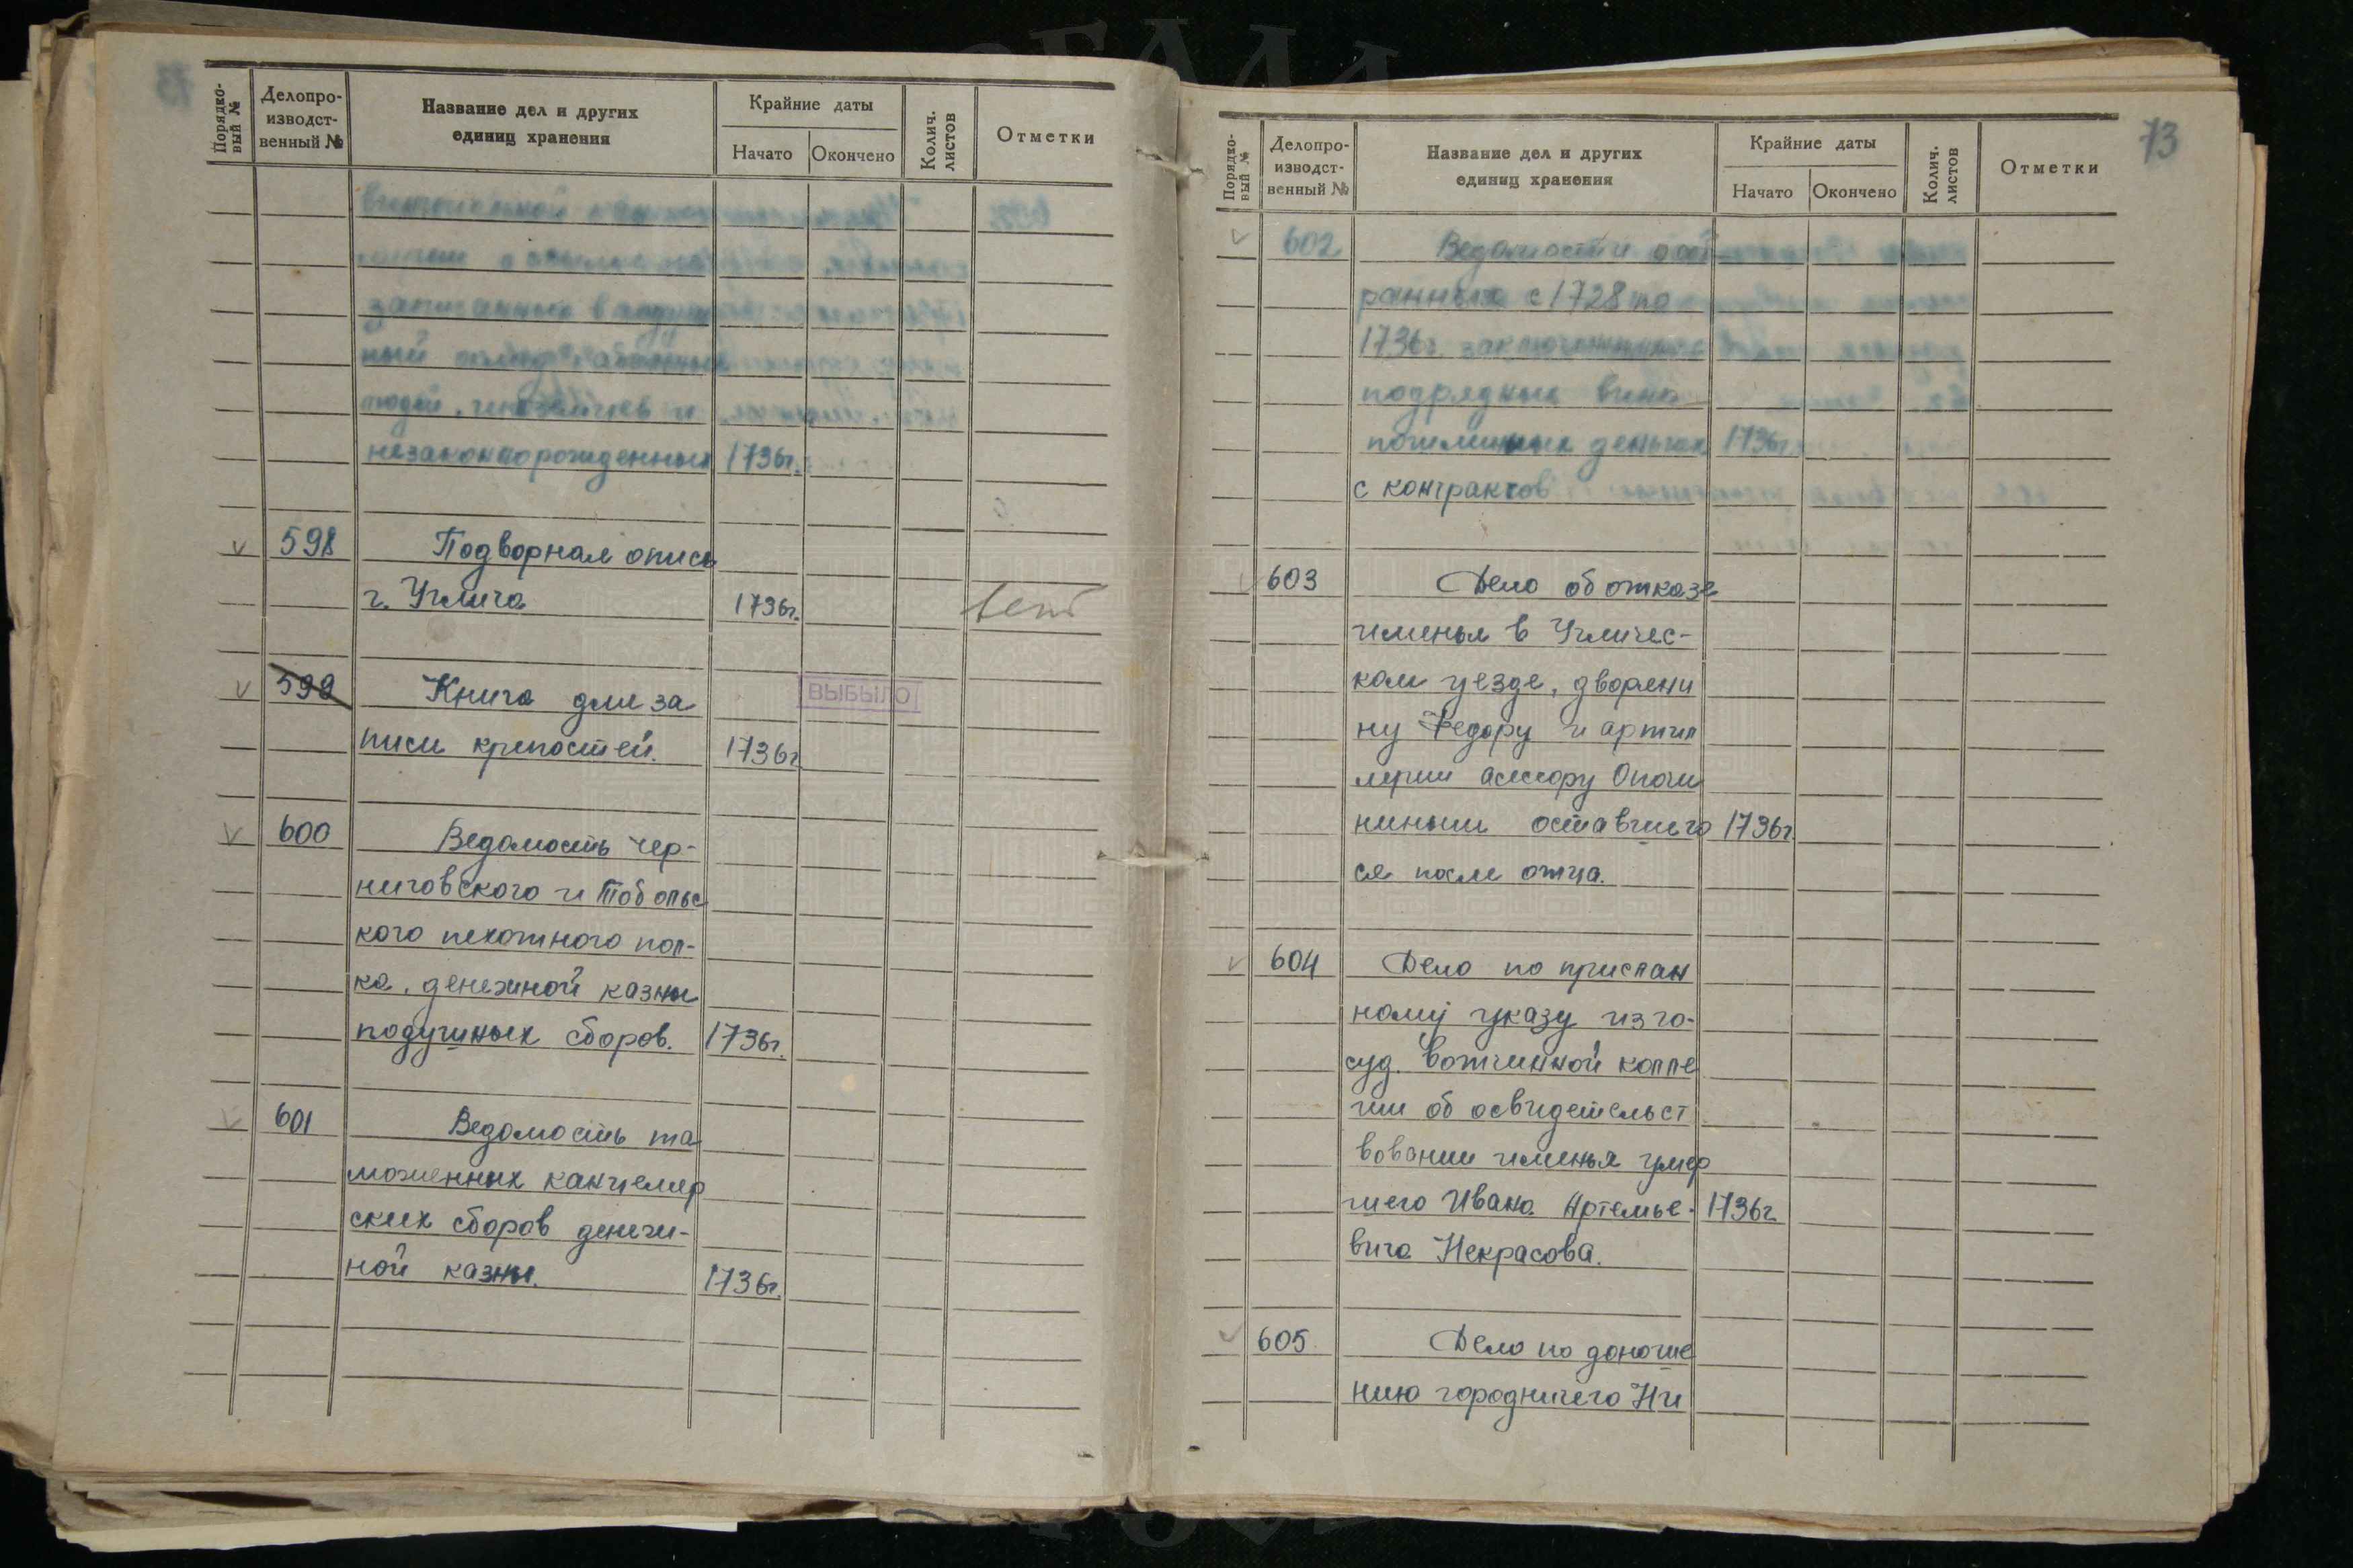 Порядко-
вый №
Делопро-
изводст-
венный №
Название дел и других
единиц хранения
Крайние даты
Начато
Окончено
Колич.
листов
Отметки
записанные в
ный оклад,
людей, иноземцев и
незаконнорожденных 1736г.
598 Подворная опись
г. Углича 1736г. есть
599 Книга для за
писи крепостей. 1736г
ВЫБЫЛО
600 Ведомость чер-
ниговского и Тобольс
кого пехотного пол-
ка, денежной казны
подушных сборов. 1736г.
601 Ведомость та
моженных канцеляр
ских сборов денеж-
ной казны. 1736г.
73
Порядко-
вый №
Делопро-
изводст-
венный №
Название дел и других
единиц хранения
Крайние даты
Начато
Окончено
Колич.
листов
Отметки
602 Ведомости о соб
ранных с 1728 по
1736г.
подрядных вина
пошлинных деньгах 1736г.
с контрактов
603 Дело об отказе
именья в Угличес-
ком уезде, дворяни
ну Федору и артил
лерии асессору Опочи
ниным оставшего 1736г.
ся после отца.
604 Дело по прислан
ному указу из го-
суд. Вотчинной колле
гии об освидетельст
вовании именья умер
шего Ивана Артемье- 1736г.
вича Некрасова.
605 Дело по доноше
нию городничего Ни